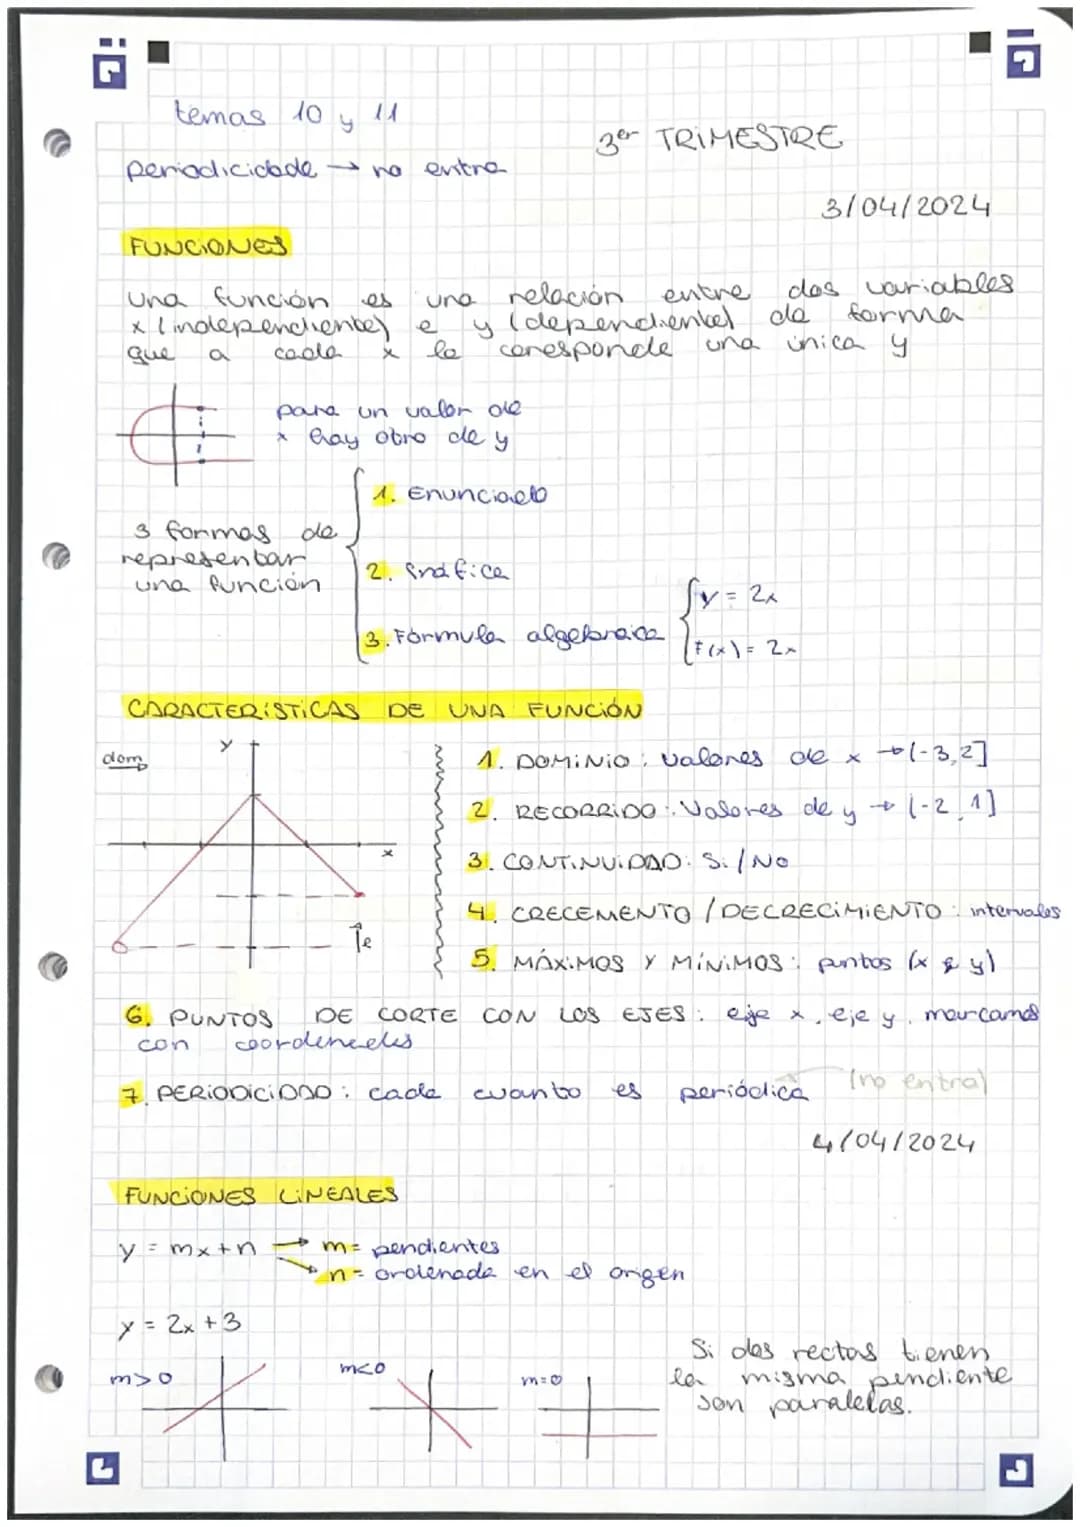 temas 10 y 11
3er TRIMESTRE
periodicidade → no entra
3/04/2024
FUNCIONES
una función es una relación entre dos variables
x (independiente) e y (dependiente) de forma
que a cada x le coresponde una única y
para un valor de
x hay otro de y
3 formas de
representar
una función
1. Enunciado
2. Gráfica
3. Fórmula algebraica
y = 2x
f(x) = 2x
CARACTERÍSTICAS DE UNA FUNCIÓN
dom
y
x
Re
1. DOMINIO: valores de x → (-3,2]
2. RECORRIDO: Valores de y → (-2,1]
3. CONTINUIDAD: Si/No
4. CRECEMENTO/DECRECIMIENTO: intervalos
5. MÁXIMOS Y MÍNIMOS: puntos (x e y)
6. PUNTOS DE CORTE CON LOS EJES: eje x, eje y, marcamos
con coordenadas
7. PERIODICIDAD: cada cuanto es periódica (no entra)
4/04/2024
FUNCIONES LINEALES
y = mx+n → m= pendientes
n= ordenada en el origen
y = 2x +3
m>0
m<0
m=0
Si dos rectas tienen
la misma pendiente
son paralelas.